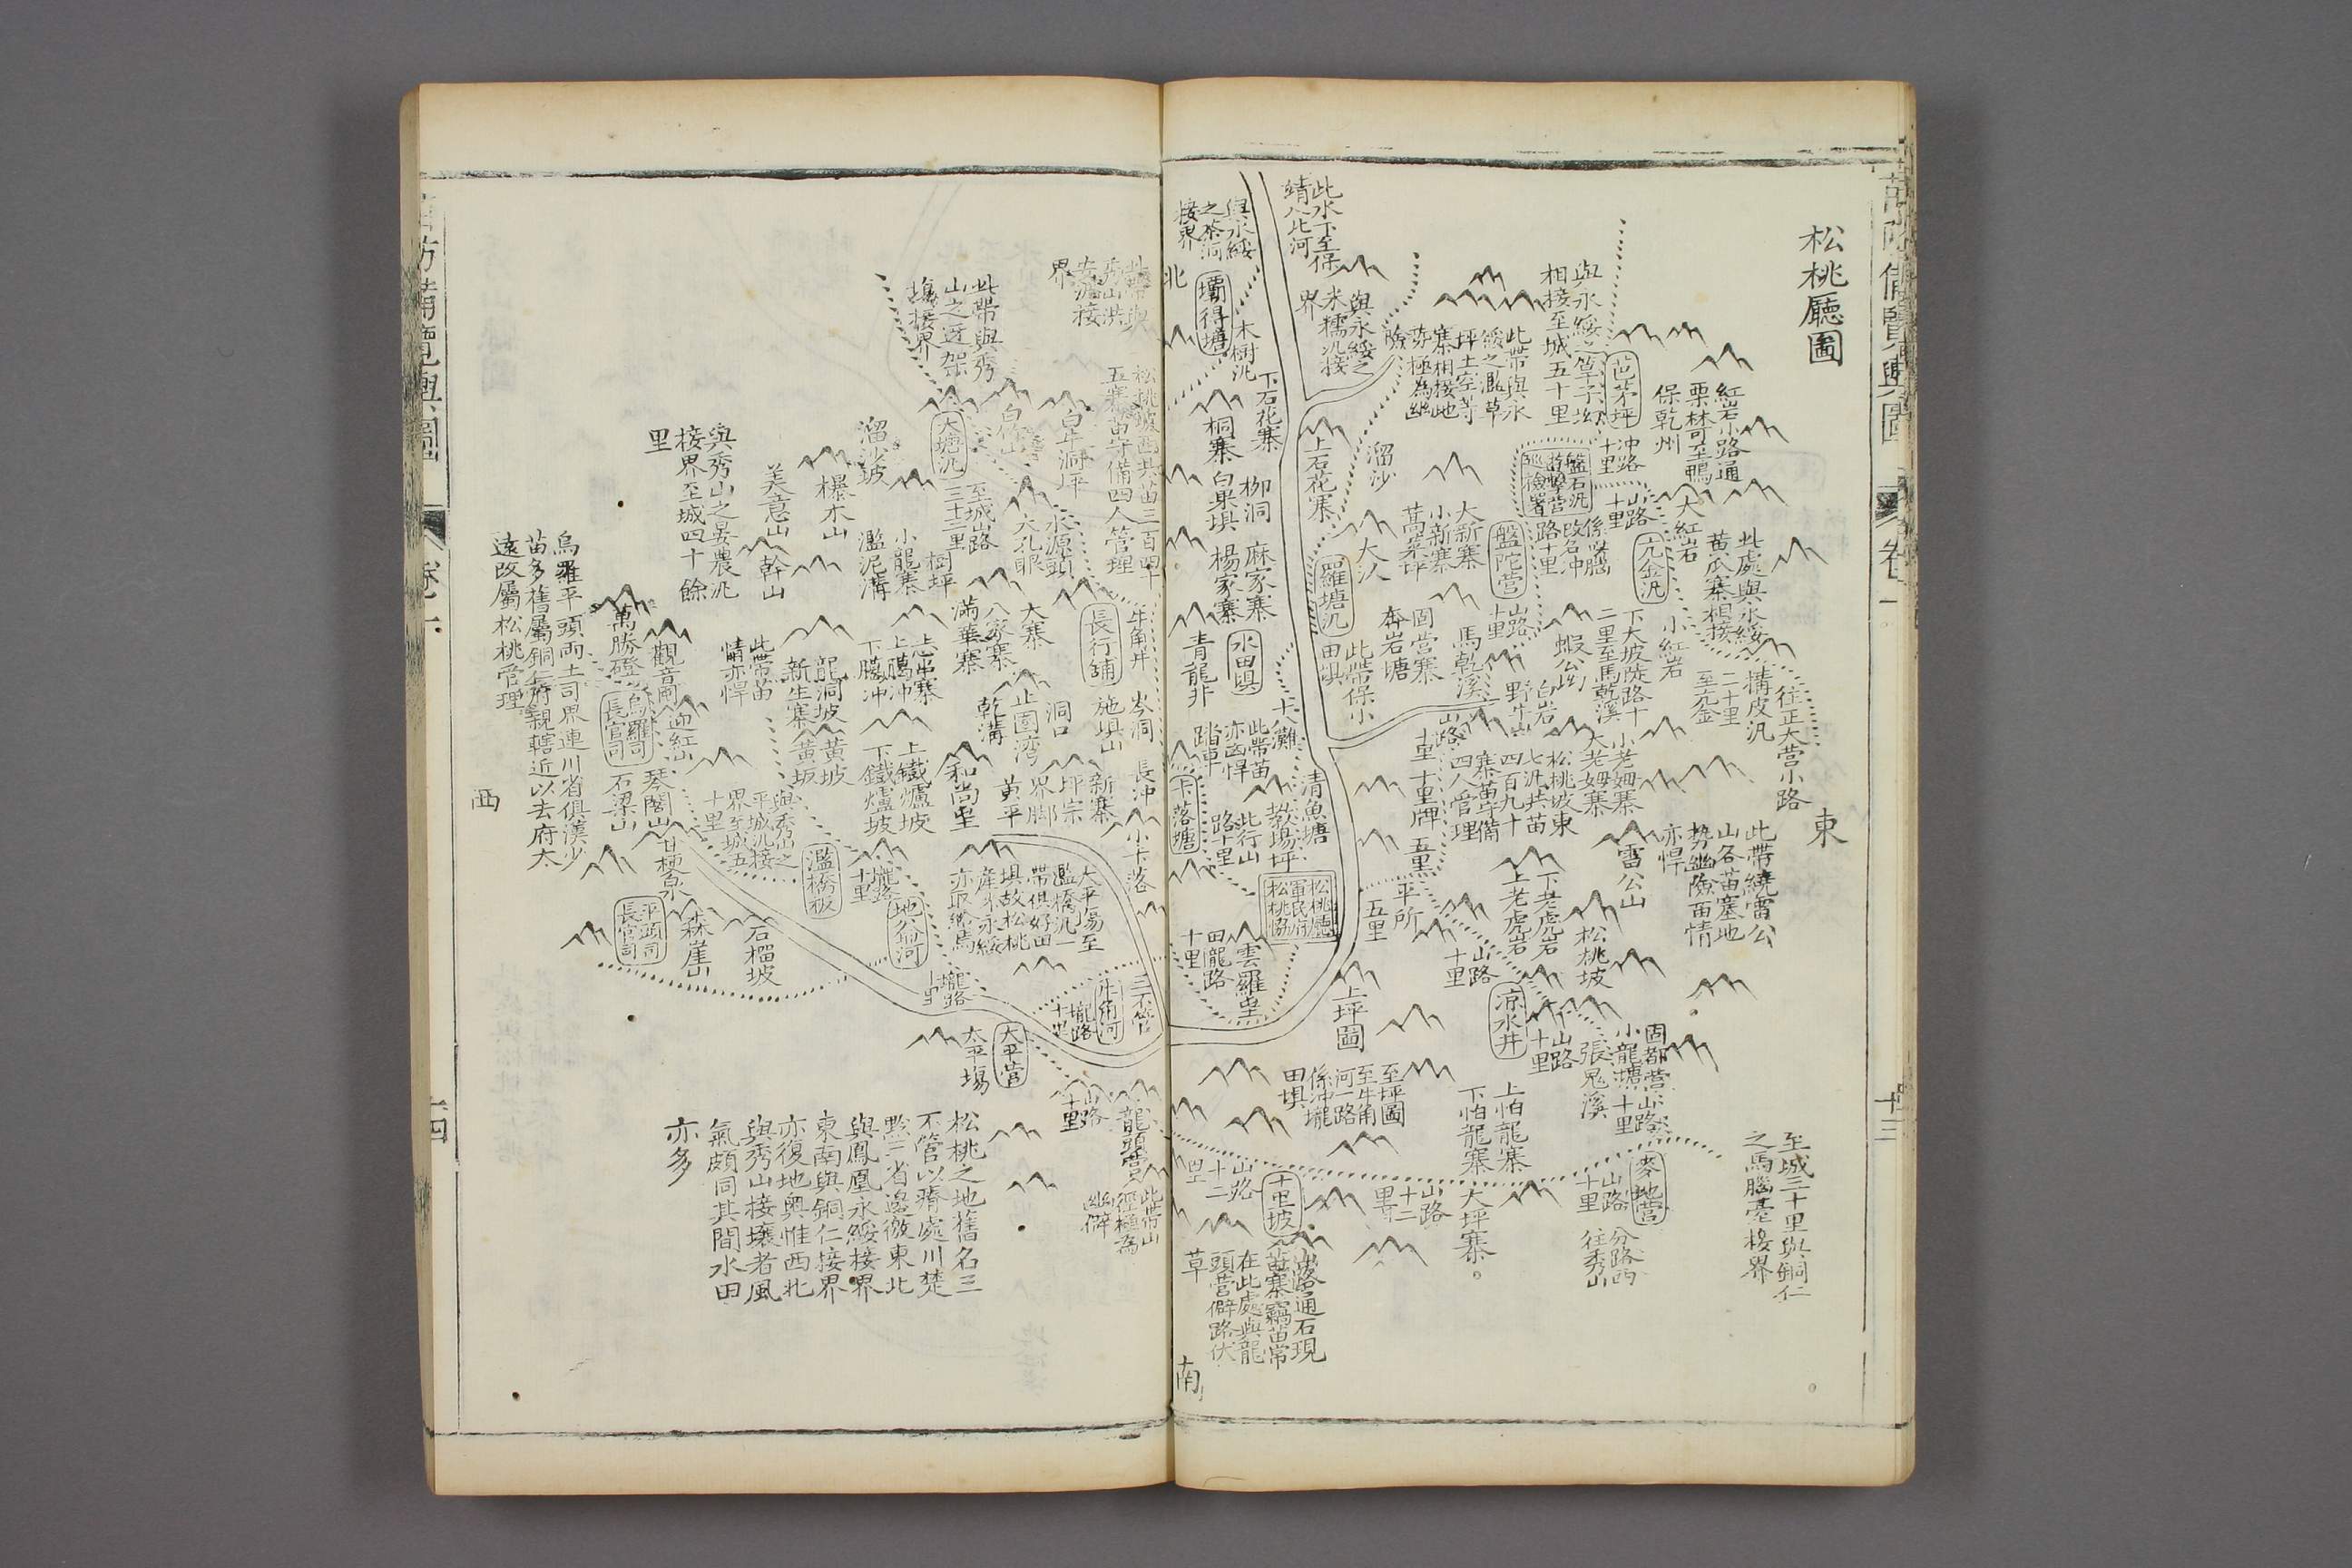 松桃廳圖
東
至城三十里與銅仁
之馬腦壴接界
此帶繞雷公
山各苗寨地
勢幽險苗情
亦悍
往正大營小路
構皮汛
二十里
至亢金
此處與永綏
黃瓜寨相接
紅岩小路通
栗林可至鴨
保乾州
大紅岩
小紅岩
亢金汛
芭茅坪
與永綏之篁子坳
相接至城五十里
冲路
十里
山路
十里
盤石汛
游擊營
巡檢署
係以臘
改名冲
路十里
盤陀營
山路
十里
下大坡陡路十
二里至馬乾溪
蝦公坳
白岩
野牛山
馬乾溪
小老姆寨
大老姆寨
松桃坡東
七汛共苗
四百九十
寨苗守備
四人管理
雷公山
下老虎岩
上老虎岩
松桃坡
山路
十里
涼水井
山路
十里
固都營山路
小龍塘十里
張鬼溪
麥地營
山路
十里
分路西
往秀山
上怕龍寨
下怕龍寨
大坪寨
山路
十二
里
此帶與永
綏之濫草
坪土空等
寨相接地
勢極為幽
險
與永綏之
米糯汛接
界
此水下至保
靖入北河
溜沙
上石花寨
大新寨
小新寨
蒿菜坪
大汃
固營寨
奔岩塘
羅塘汛
此帶保小
田塤
山路
十里
十里牌
五里
平所
五里
上坪圖
至坪圖
至牛角
河一路
係冲壠
田塤
與永綏
之茶洞
接界
北
壩得塘
木樹汛
下石花寨
桐寨
柳洞
白果塤
麻家寨
楊家寨
水田塤
青龍非
十八灘
此帶苗
亦凶悍
踏車
清魚塘
教場坪
此行山
路十里
卡落塘
松桃廳
軍民府
松桃協
雲羅里
田隴路
十里
山路
十二
里
十里坡
山路通石現
苗寨竊苗常
在此處與龍
頭營僻路伏
草
南
此帶與
秀山洪
安濫接
界
松桃坡西共苗三百四十
五寨苗守備四人管理
此帶與秀
山之迓架
塲接界
白牛洞坪
白竹山
大塘汛
至城山路
三十二里
水源頭
大孔眼
牛角井
長行舖
岑洞
施塤山
長冲
小卡落
大寨
八家寨
滿華寨
洞口
止圖湾
乾溝
新寨
坪宗
界腳
黃平
和尚里
溜沙坡
樹坪
小龍寨
濫泥溝
欅木山
美意山
幹山
與秀山之晏農汛
接界至城四十餘
里
上臈冲
下臈冲
龍洞坡
新生寨
此帶苗
情亦悍
黃坡
黃坂
上鐵爐坡
下鐵爐坡
與秀山之
平城汛接
界至城五
十里
濫橋板
壠路
十里
地谷河
大平塲至
濫橋汛一
帶俱好田
塤故松桃
產米永綏
亦取給焉
三不管
牛角河
壠路
十里
壠路
十里
大平營
太平塲
山路
十里
龍頭營
此帶山
徑極為
幽僻
烏羅平頭兩土司界連川省俱漢少
苗多舊屬銅仁府親轄近以去府太
遠改屬松桃管理
萬勝磴
觀音閣
烏羅司
長官司
迎紅山
琴閣山
石梁山
甘梗泉
平頭司
長官司
森崖山
石榴坡
西
松桃之地舊名三
不管以瘠處川楚
黔三省邊徼東北
與鳳凰永綏接界
東南與銅仁接界
亦復地輿惟西北
與秀山接壤者風
氣頗同其間水田
亦多